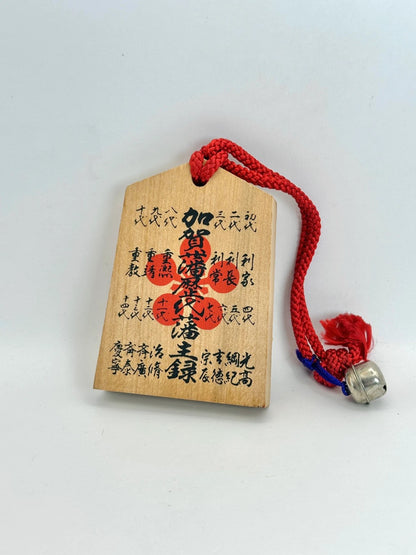 初代 利家
二代 利長
三代 利常
四代 光高
五代 綱紀
六代 吉徳
七代 宗辰
加賀藩歴代藩主録
八代 重熈
九代 重靖
十代 重教
十一代 治脩
十二代 斉廣
十三代 斉泰
十四代 慶寧